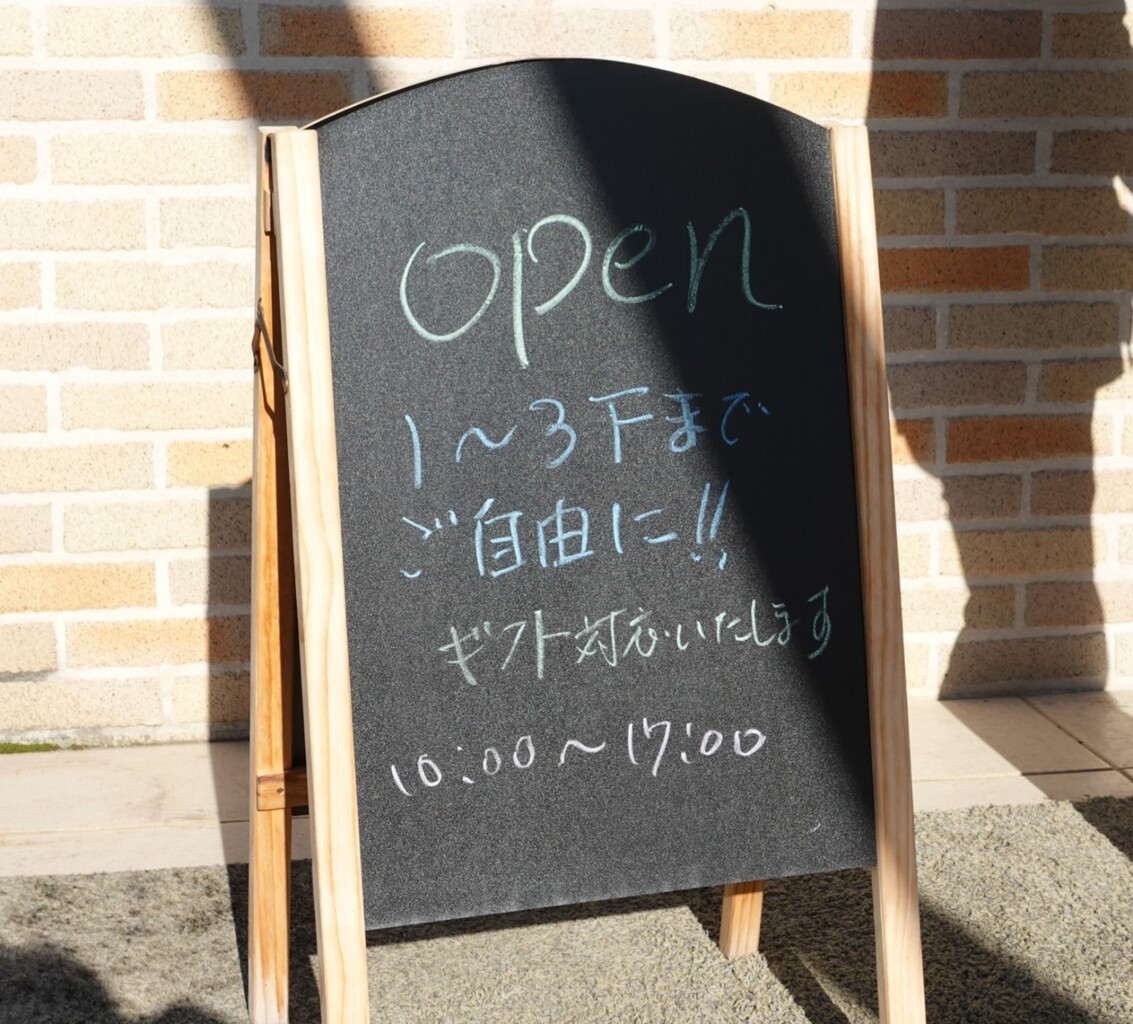 open
1～3下まで
ご自由に!!
ギフト対応いたします
10:00～17:00